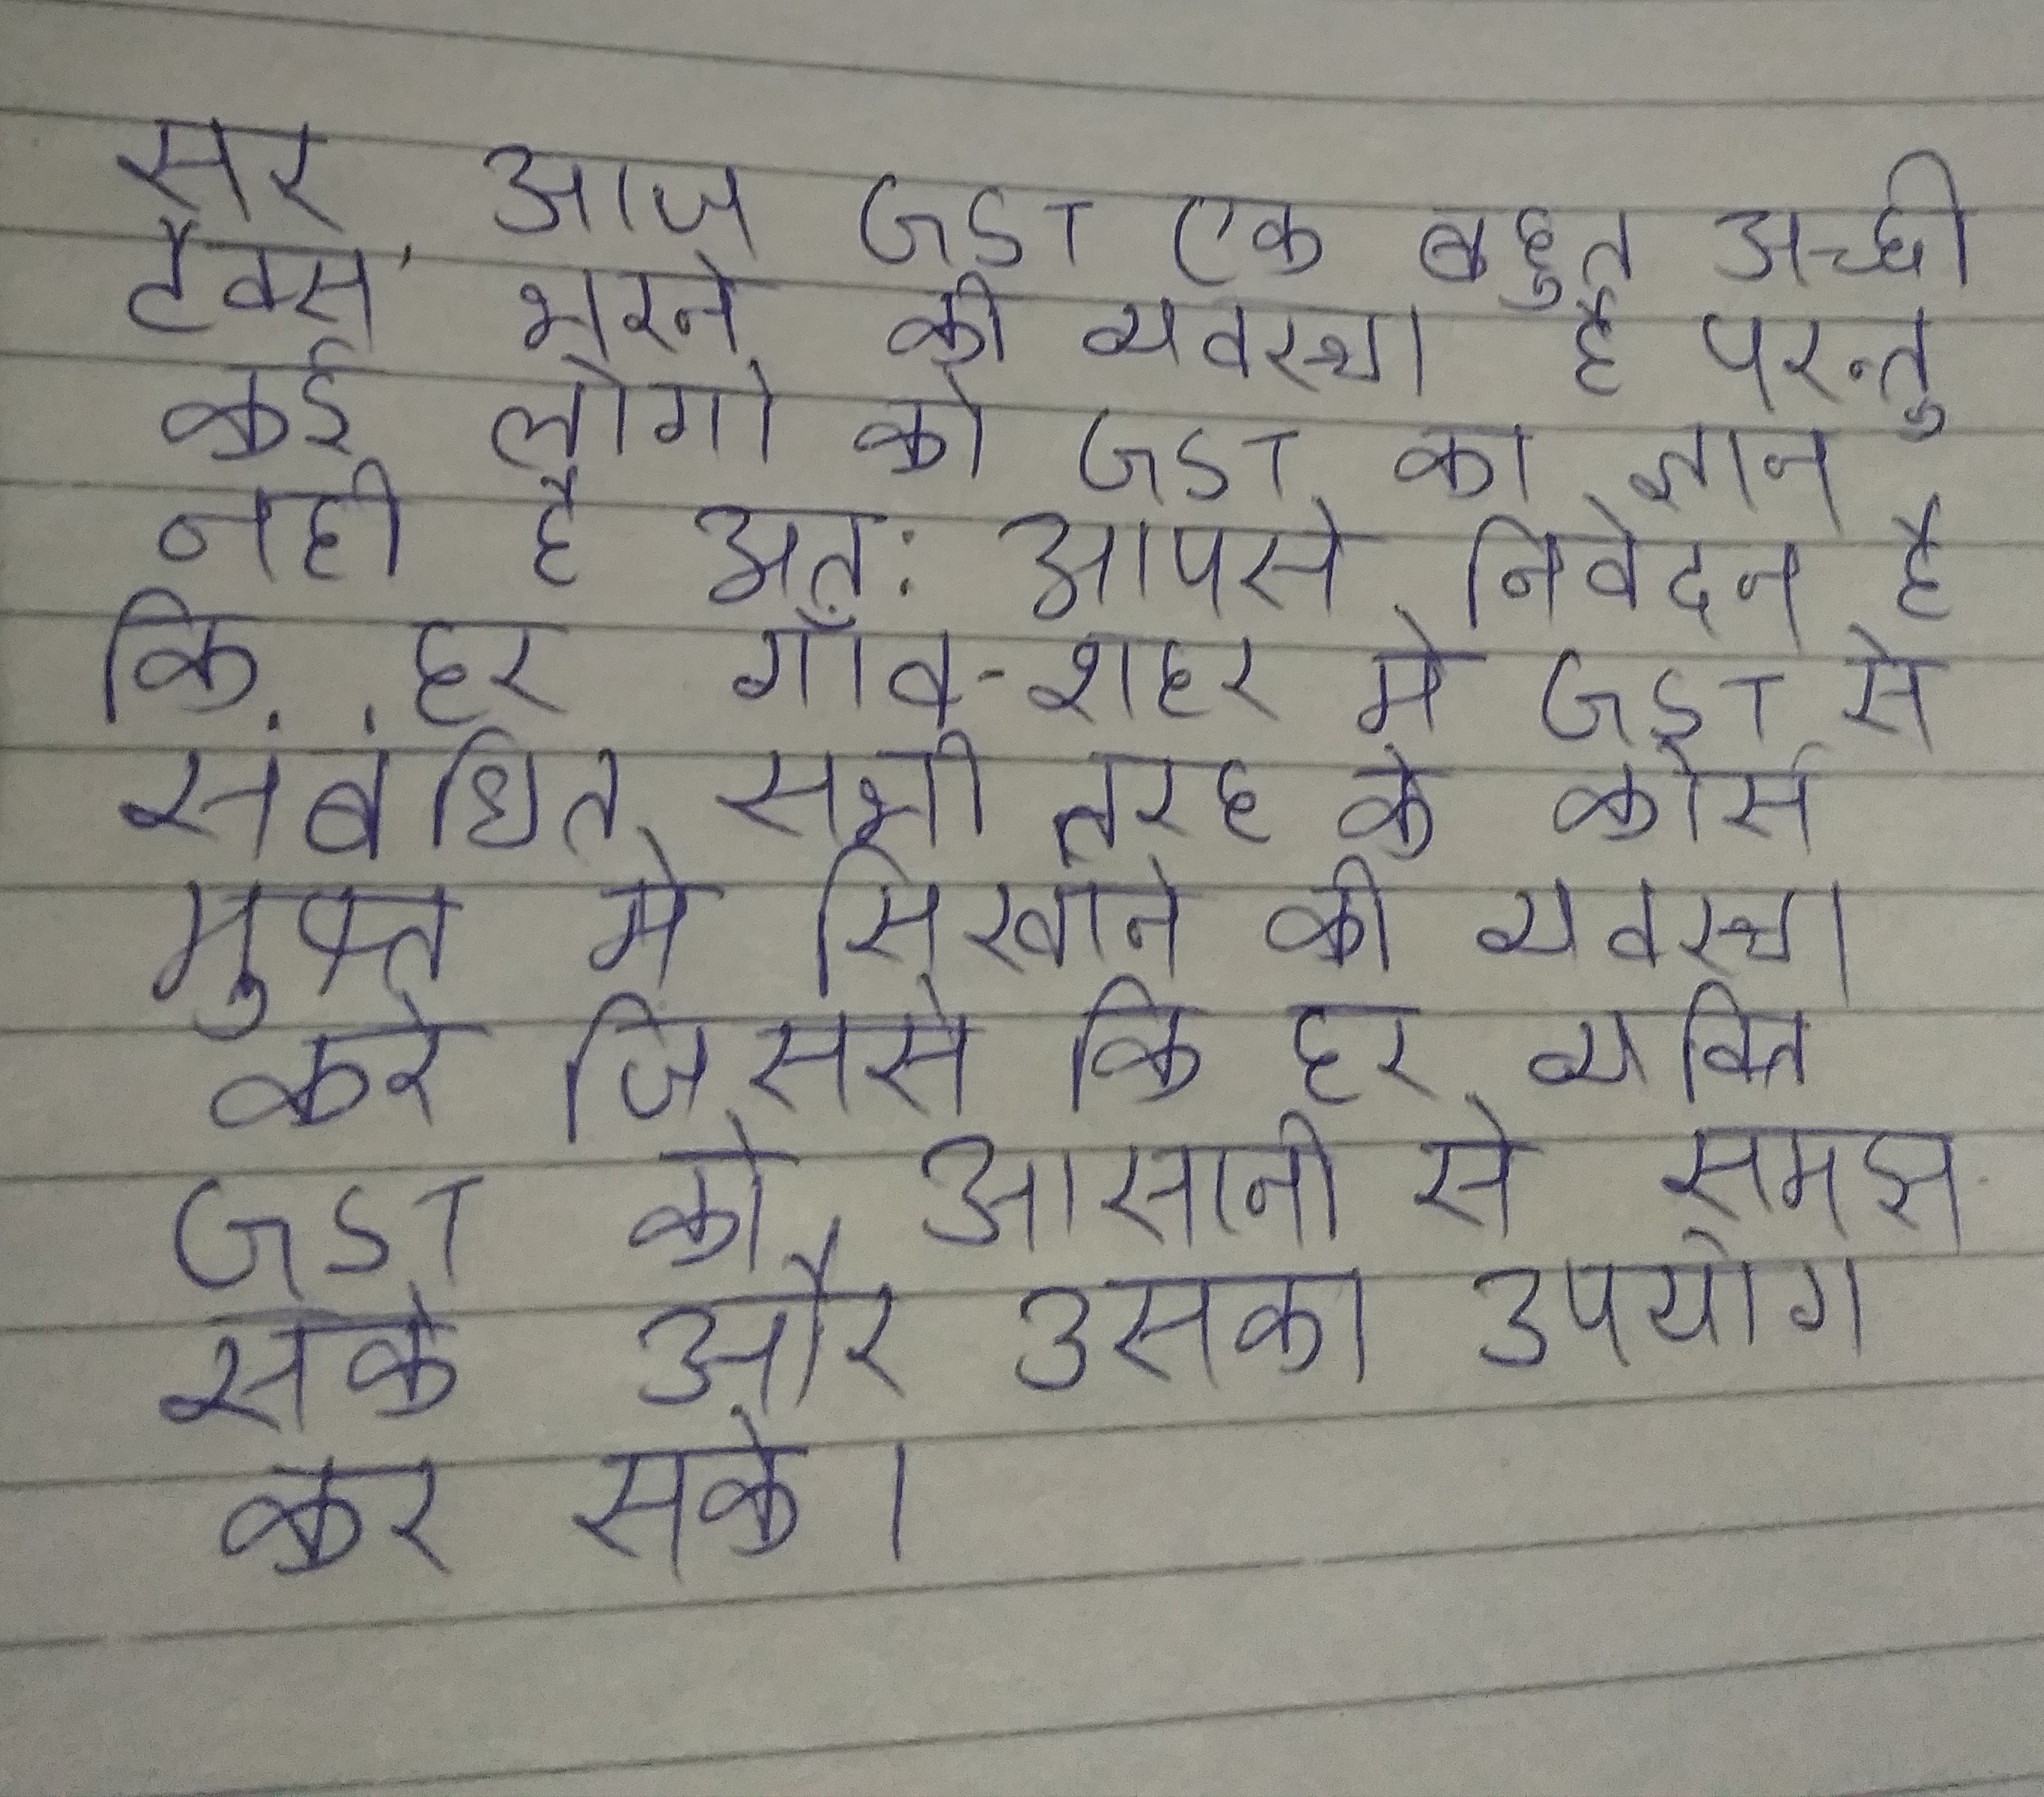 सर आज GST एक बहुत अच्छी
टैक्स भरने की व्यवस्था है परन्तु
कई लोगो को GST का ज्ञान
नही है अतः आपसे निवेदन है
कि हर गाँव-शहर मे GST से
संबंधित सभी तरह के कोर्स
मुफ्त मे सिखाने की व्यवस्था
करे जिससे कि हर व्यक्ति
GST को आसानी से समझ
सके और उसका उपयोग
कर सके।